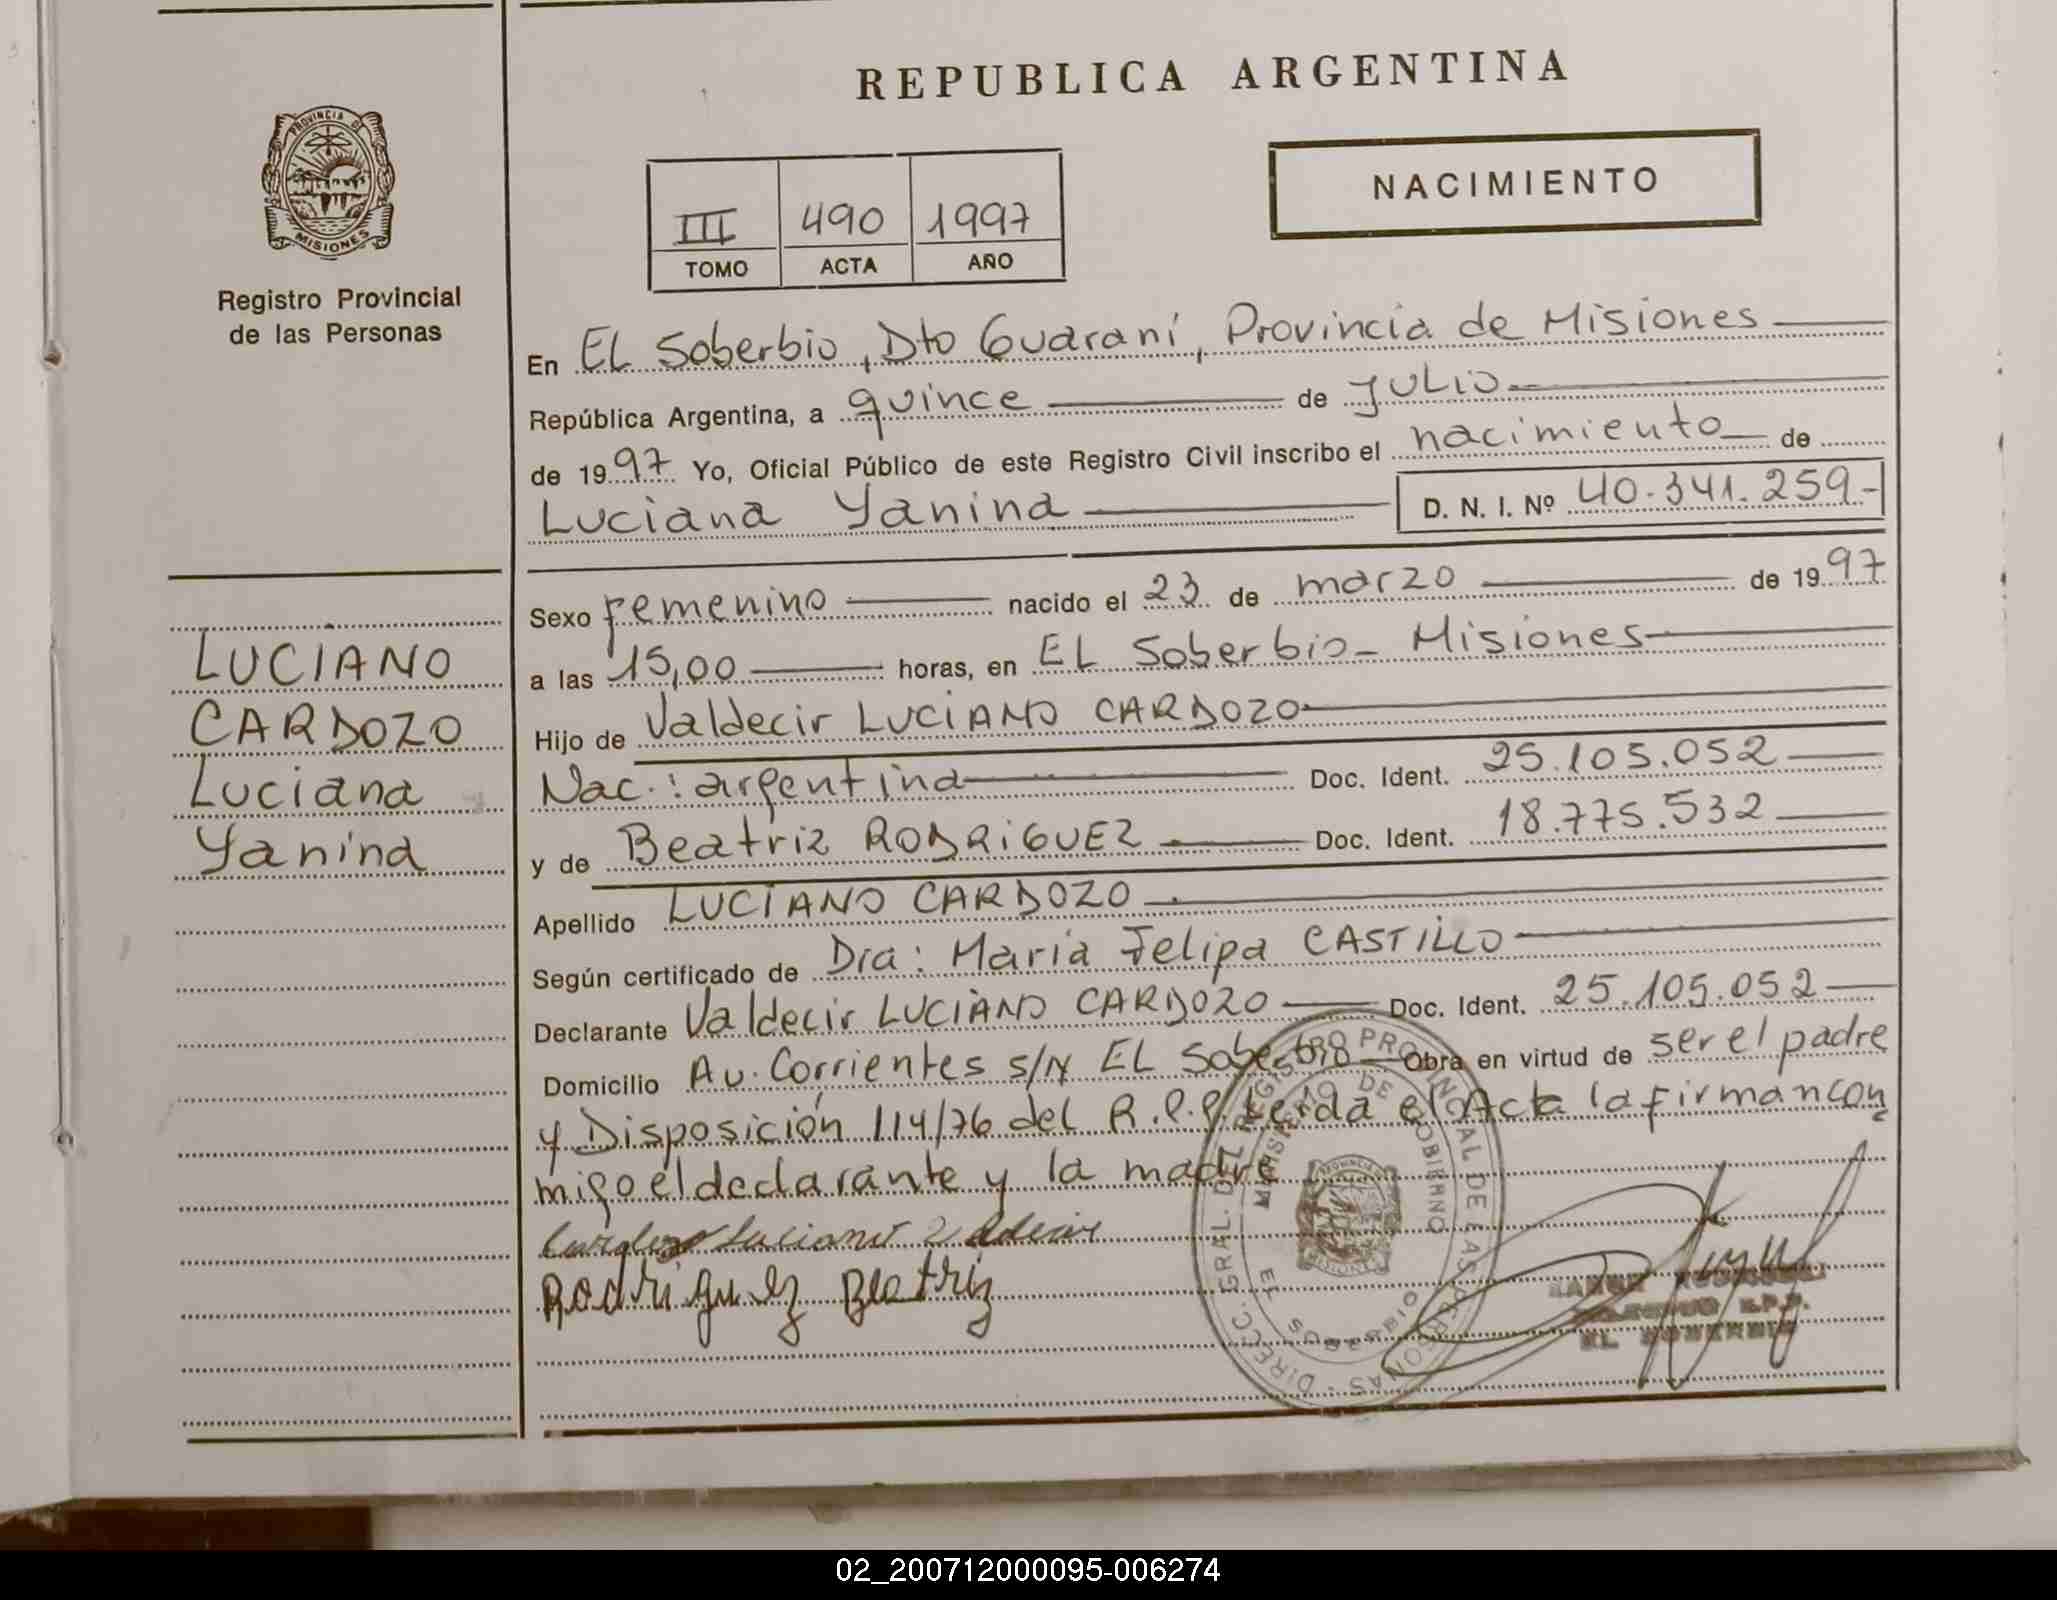 REPUBLICA ARGENTINA
NACIMIENTO
III 490 1997
TOMO ACTA AÑO
PROVINCIA DE
MISIONES
Registro Provincial
de las Personas
En EL Soberbio, Dto Guaraní, Provincia de Misiones
República Argentina, a quince de JULIO
de 1997 Yo, Oficial Público de este Registro Civil inscribo el nacimiento de
Luciana Yanina D. N. I. Nº 40.341.259.-
Sexo femenino nacido el 23 de marzo de 1997
a las 15,00 horas, en EL Soberbio - Misiones
Hijo de Valdecir LUCIANO CARDOZO
Nac.: argentina Doc. Ident. 25.105.052
y de Beatriz RODRIGUEZ Doc. Ident. 18.775.532
Apellido LUCIANO CARDOZO
Según certificado de Dra: María Felipa CASTILLO
Declarante Valdecir LUCIANO CARDOZO Doc. Ident. 25.105.052
Domicilio Av. Corrientes S/N EL Soberbio Obra en virtud de ser el padre
y Disposición 114/76 del R.P.P. Leida el Acta la firman con
migo el declarante y la madre
Cardozo Luciano
Rodriguez Beatriz
LUCIANO
CARDOZO
Luciana
Yanina
DIRECC. GRAL. DEL REGISTRO PROVINCIAL DE LAS PERSONAS
MINISTERIO DE GOBIERNO
EL SOBERBIO
PROVINCIA DE
MISIONES
R.P.P.
EL SOBERBIO
02_200712000095-006274